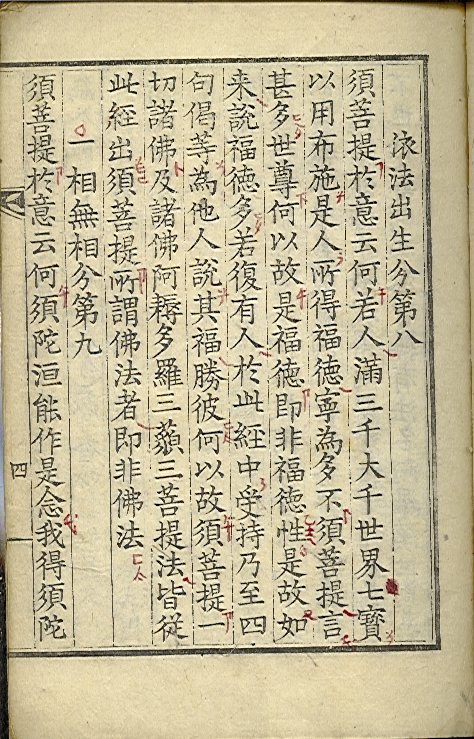 依法出生分第八
須菩提於意云何若人滿三千大千世界七寶
以用布施是人所得福德寧為多不須菩提言
甚多世尊何以故是福德即非福德性是故如
来說福德多若復有人於此經中受持乃至四
句偈等為他人說其福勝彼何以故須菩提一
切諸佛及諸佛阿耨多羅三藐三菩提法皆從
此經出須菩提所謂佛法者即非佛法
一相無相分第九
須菩提於意云何須陀洹能作是念我得須陀
四